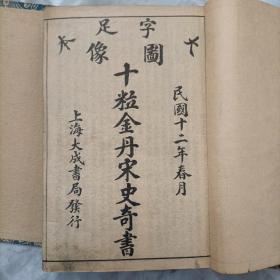 足字
像圖
民國十二年春月
十粒金丹宋史奇書
上海大成書局發行